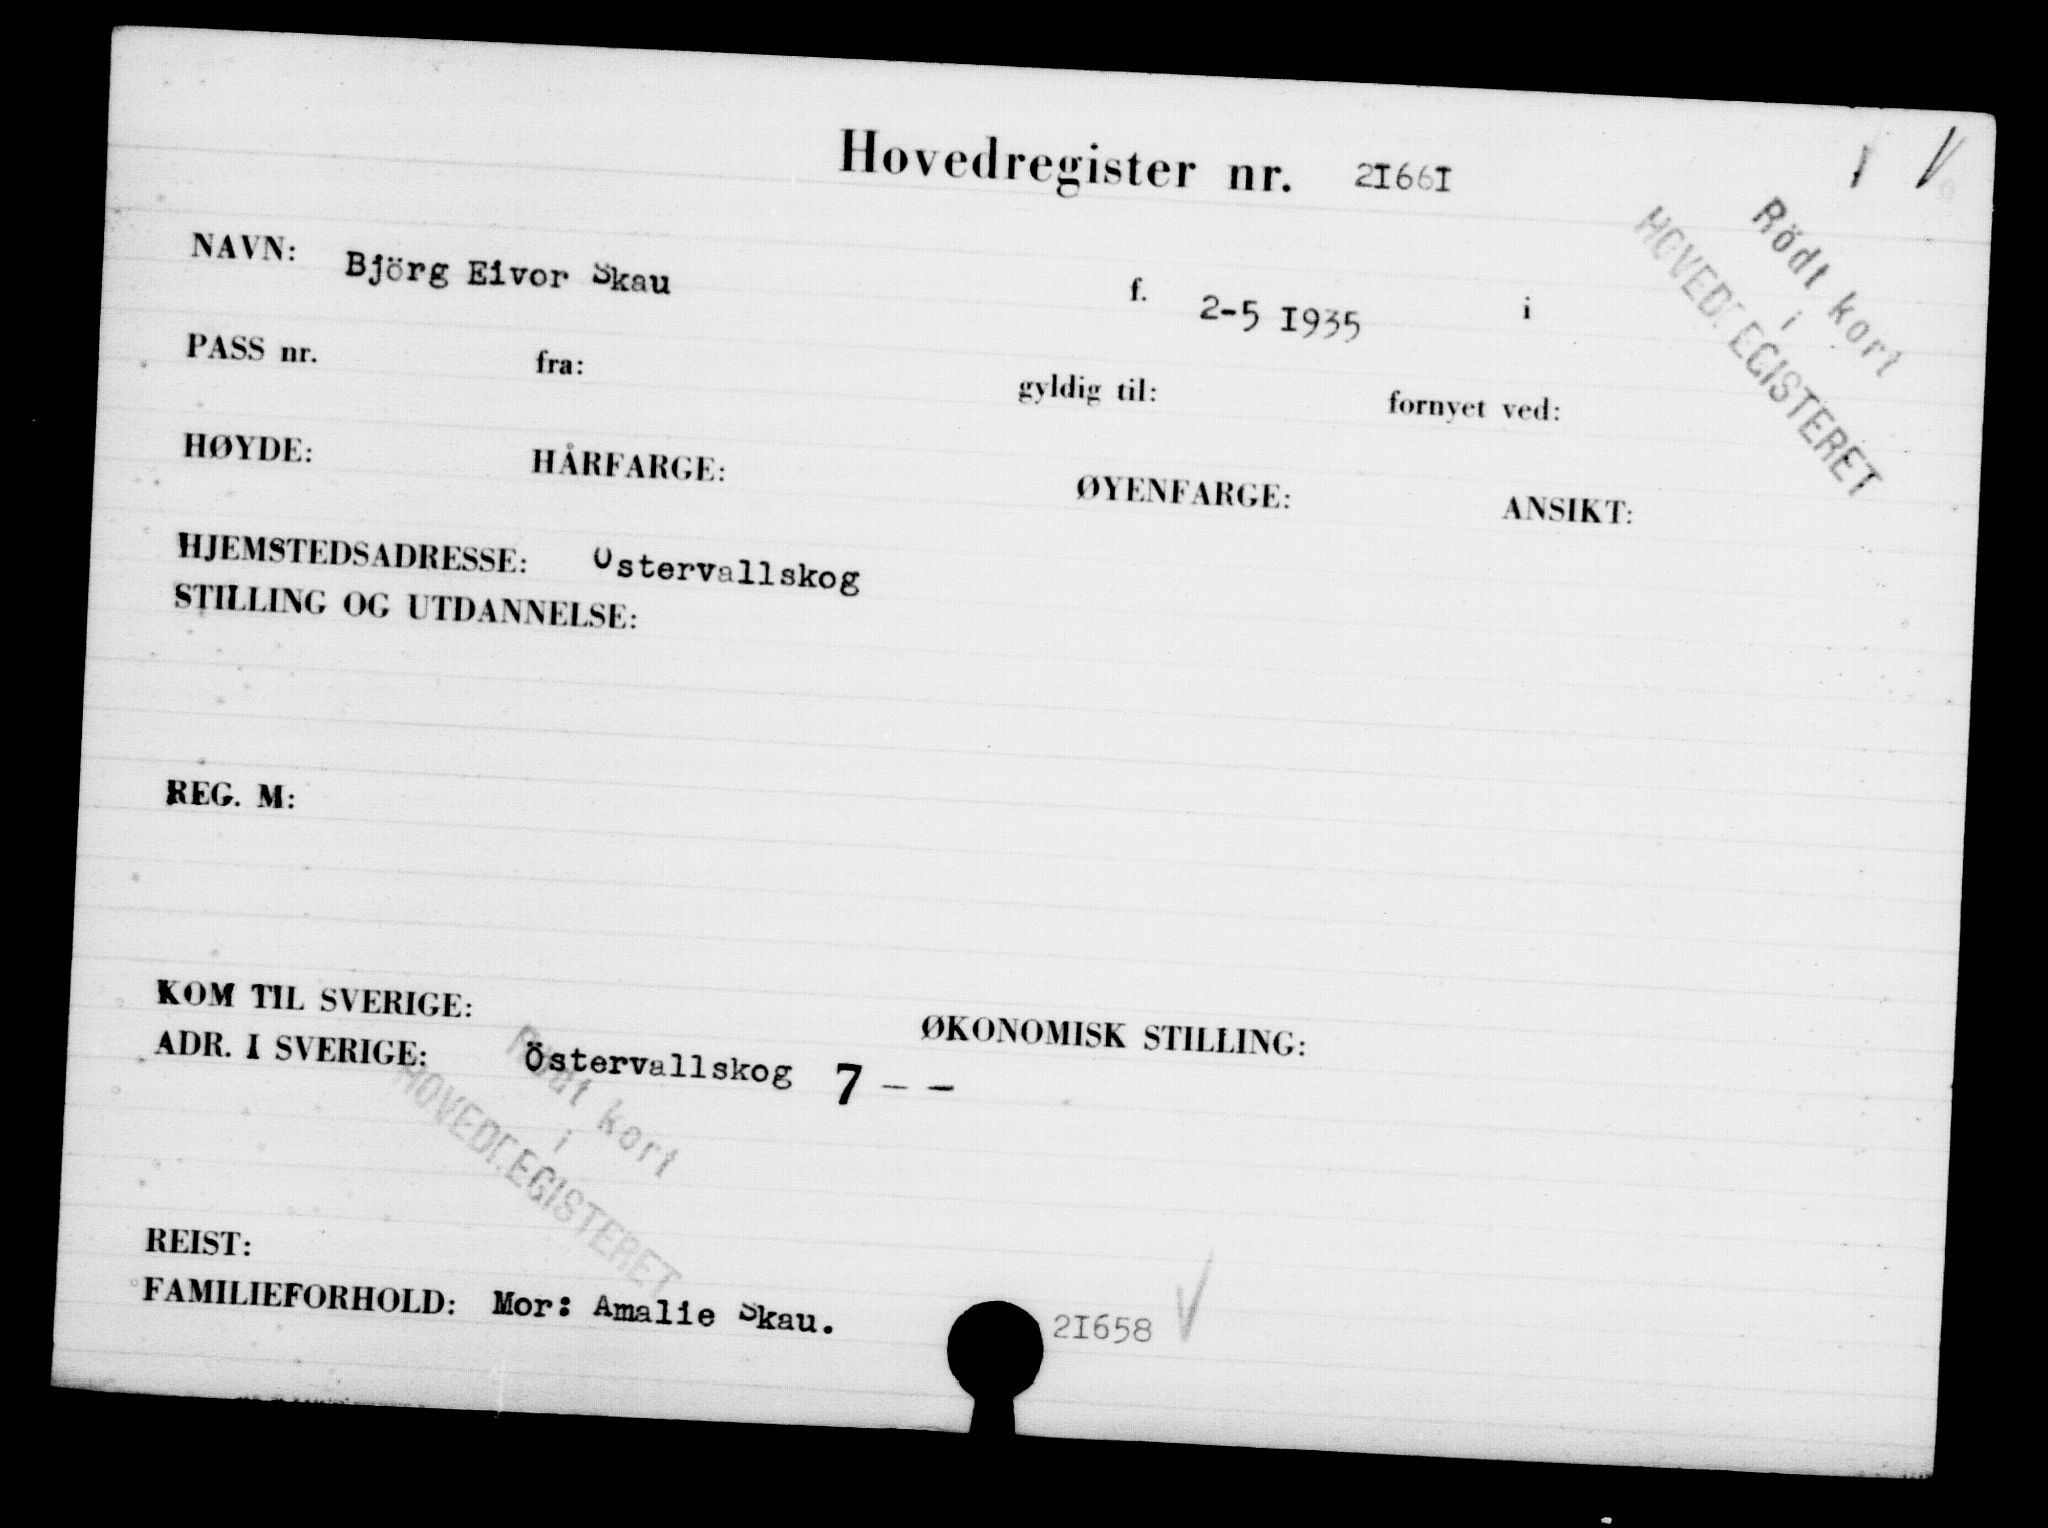 Hovedregister nr. 2I66I
Rödt kort
i
HOVEDREGISTERET
NAVN: Björg Eivor Skau f. 2-5 I935 i
PASS nr. fra: gyldig til: fornyet ved:
HØYDE: HÅRFARGE: ØYENFARGE: ANSIKT:
HJEMSTEDSADRESSE: Östervallskog
STILLING OG UTDANNELSE:
REG. M:
KOM TIL SVERIGE: ØKONOMISK STILLING:
ADR. I SVERIGE: Östervallskog 7 - -
Rödt kort
i
HOVEDREGISTERET
REIST:
FAMILIEFORHOLD: Mor: Amalie Skau. 2I658